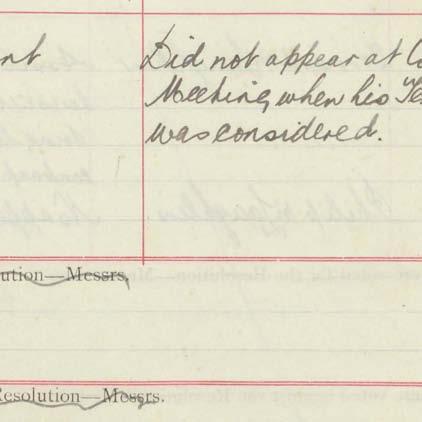 nt Did not appear at Co
Meeting, when his Te
was considered.
ution—Messrs.
Resolution—Messrs.